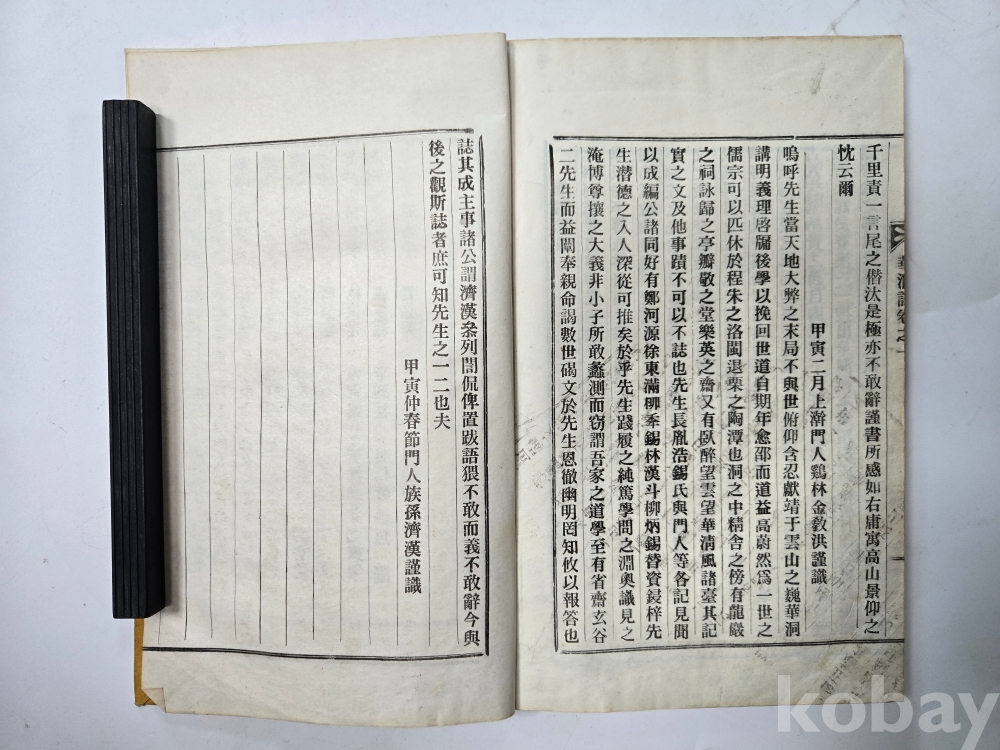 千里責一言尾之僭汰是極亦不敢辭謹書所感如右庸寓高山景仰之
忱云爾
甲寅二月上澣門人鷄林金敎洪謹識
嗚呼先生當天地大弊之末局不與世俯仰含忍獻靖于雲山之巍華洞
講明義理啓牖後學以挽回世道自期年愈邵而道益高蔚然爲一世之
儒宗可以匹休於程朱之洛閩退栗之陶潭也洞之中精舍之傍有龍巖
之祠詠歸之亭瓣敬之堂樂英之齋又有臥醉望雲望華淸風諸臺其記
實之文及他事蹟不可以不誌也先生長胤浩錫氏與門人等各記見聞
以成編公諸同好有鄭河源徐東滿柳秊錫林漢斗柳炳錫替資鋟梓先
生潛德之入人深從可推矣於乎先生踐履之純篤學問之淵奧識見之
淹博尊攘之大義非小子所敢蠡測而窃謂吾家之道學至有省齋玄谷
二先生而益闡奉親命謁數世碣文於先生恩徹幽明罔知攸以報答也
誌其成主事諸公謂濟漢叅列誾侃俾置跋語猥不敢而義不敢辭今與
後之觀斯誌者庶可知先生之一二也夫
甲寅仲春節門人族孫濟漢謹識
kobay